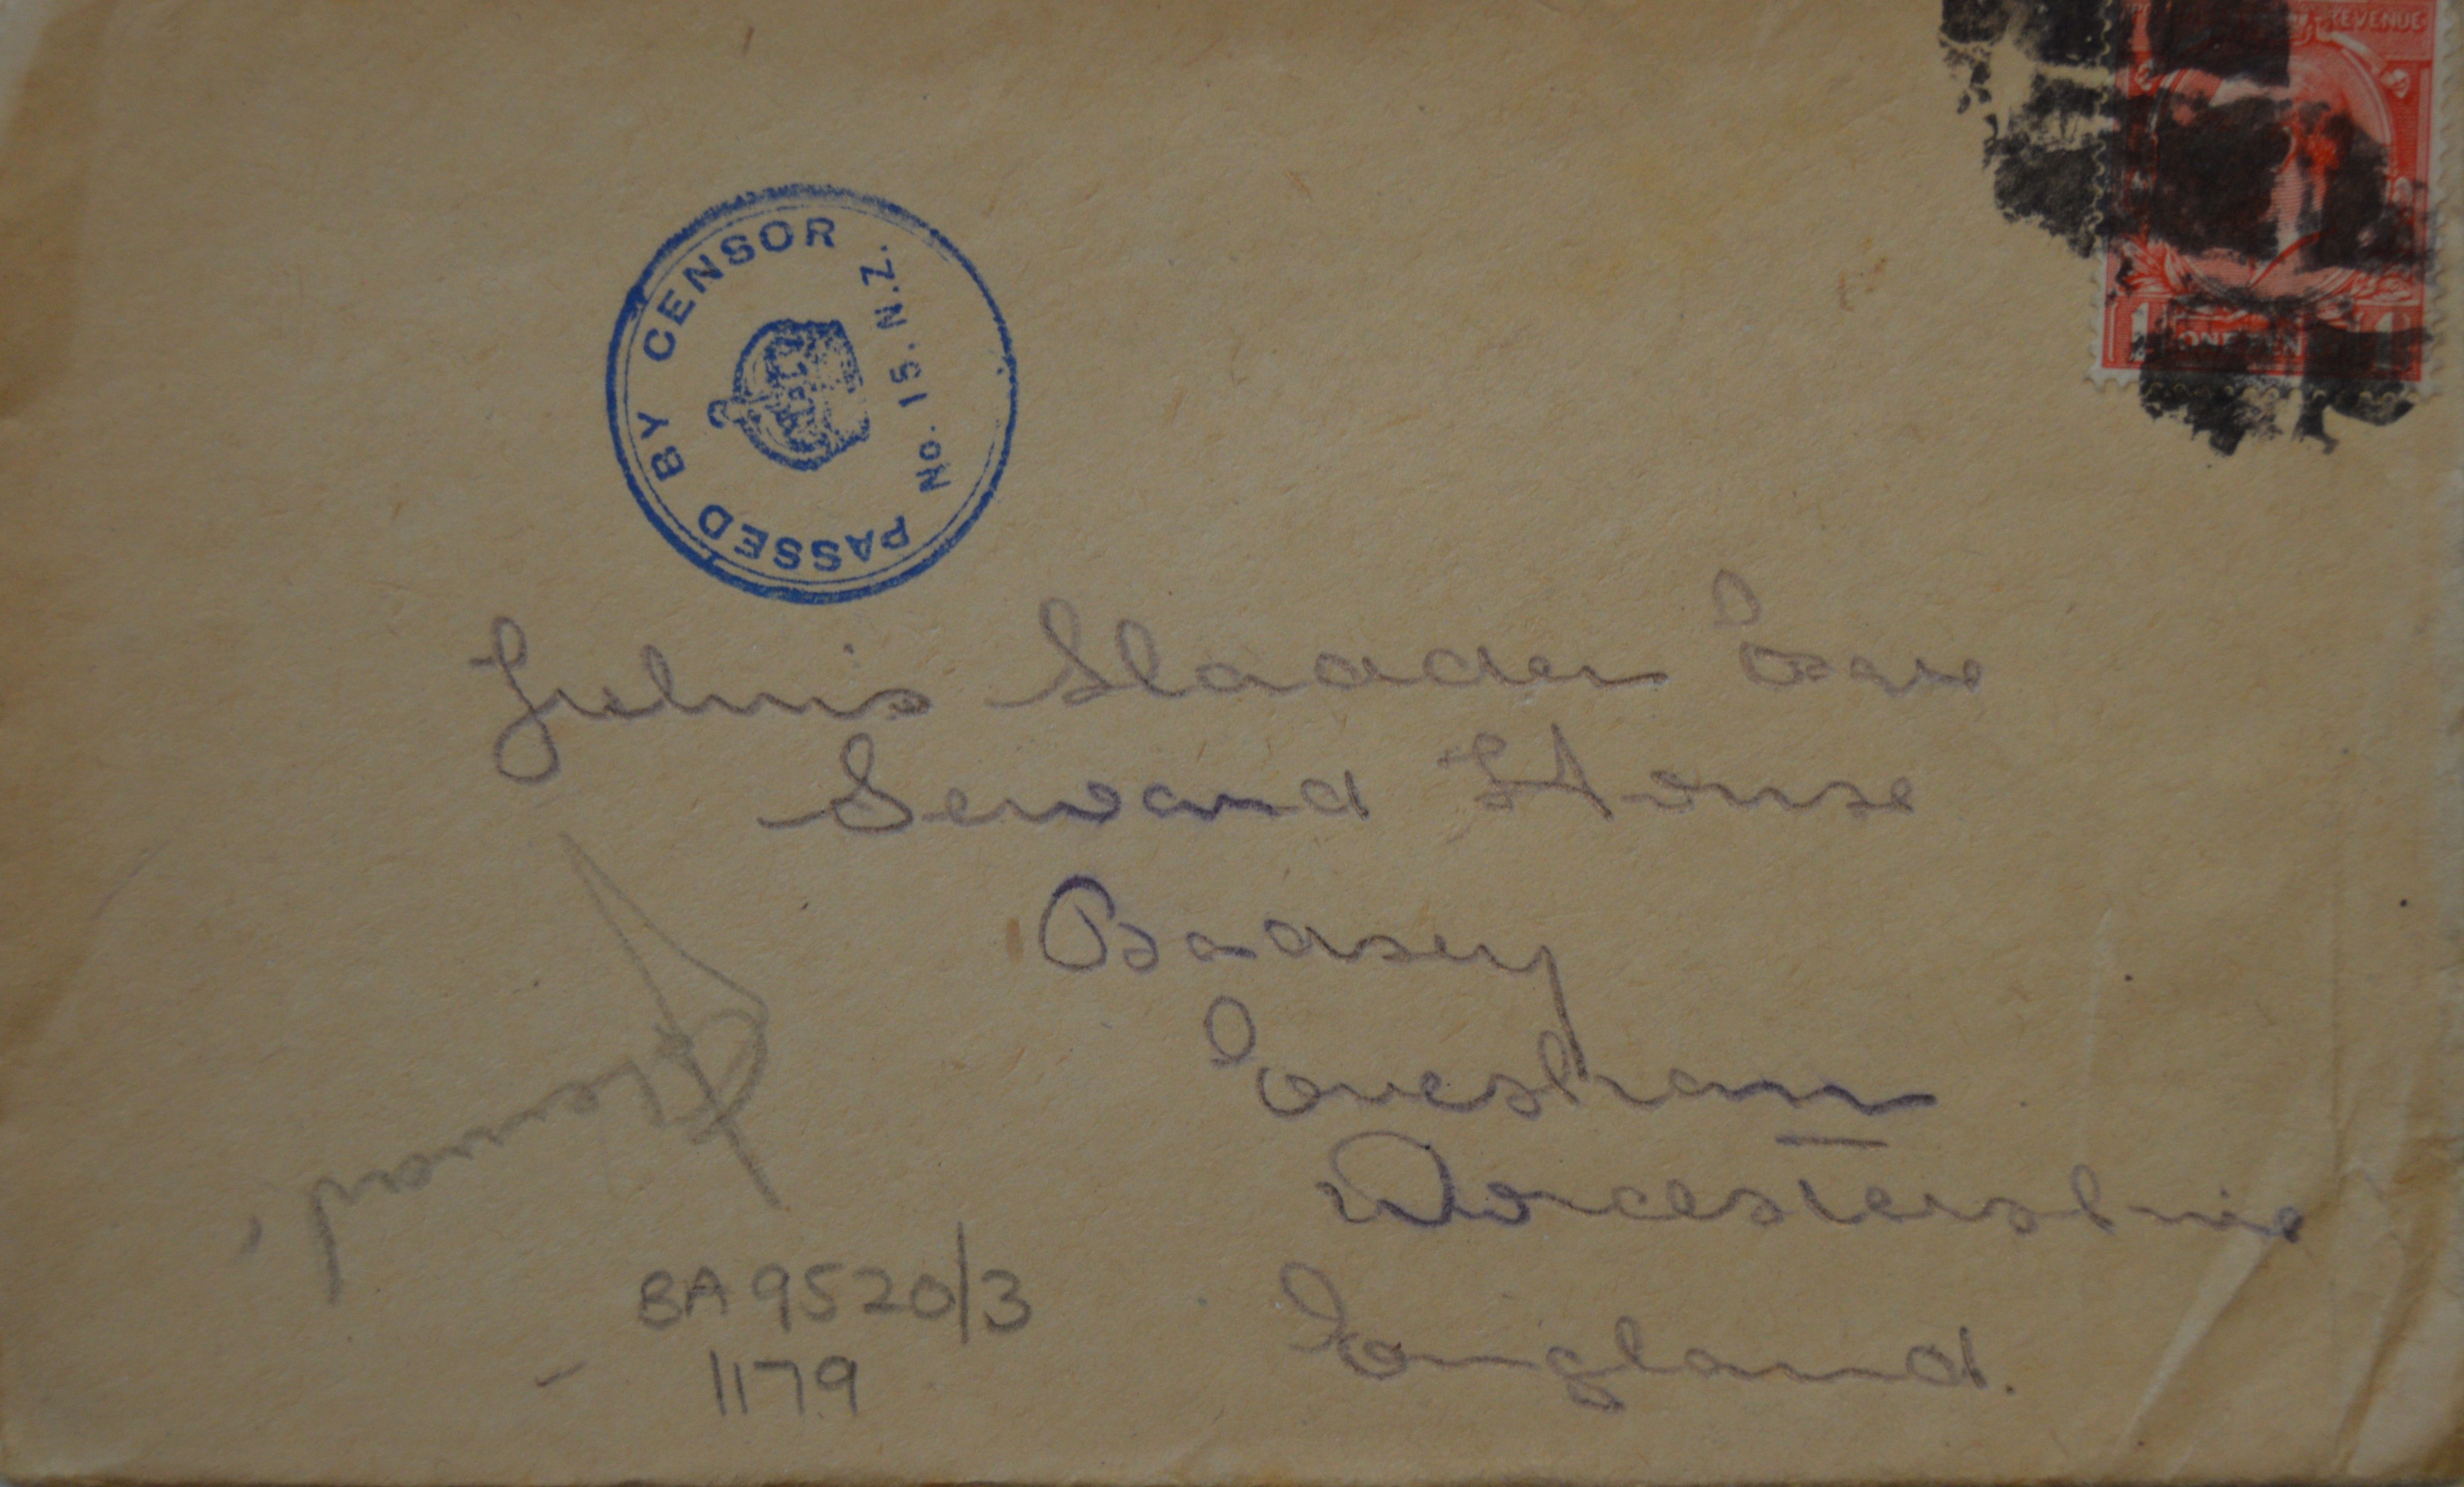 REVENUE
ONE PEN
PASSED BY CENSOR
No. 15. N.Z.
Julius Sladden Esqre
Seward House
Badsey
Evesham
Worcestershire
England.
BA 9520/3
1179